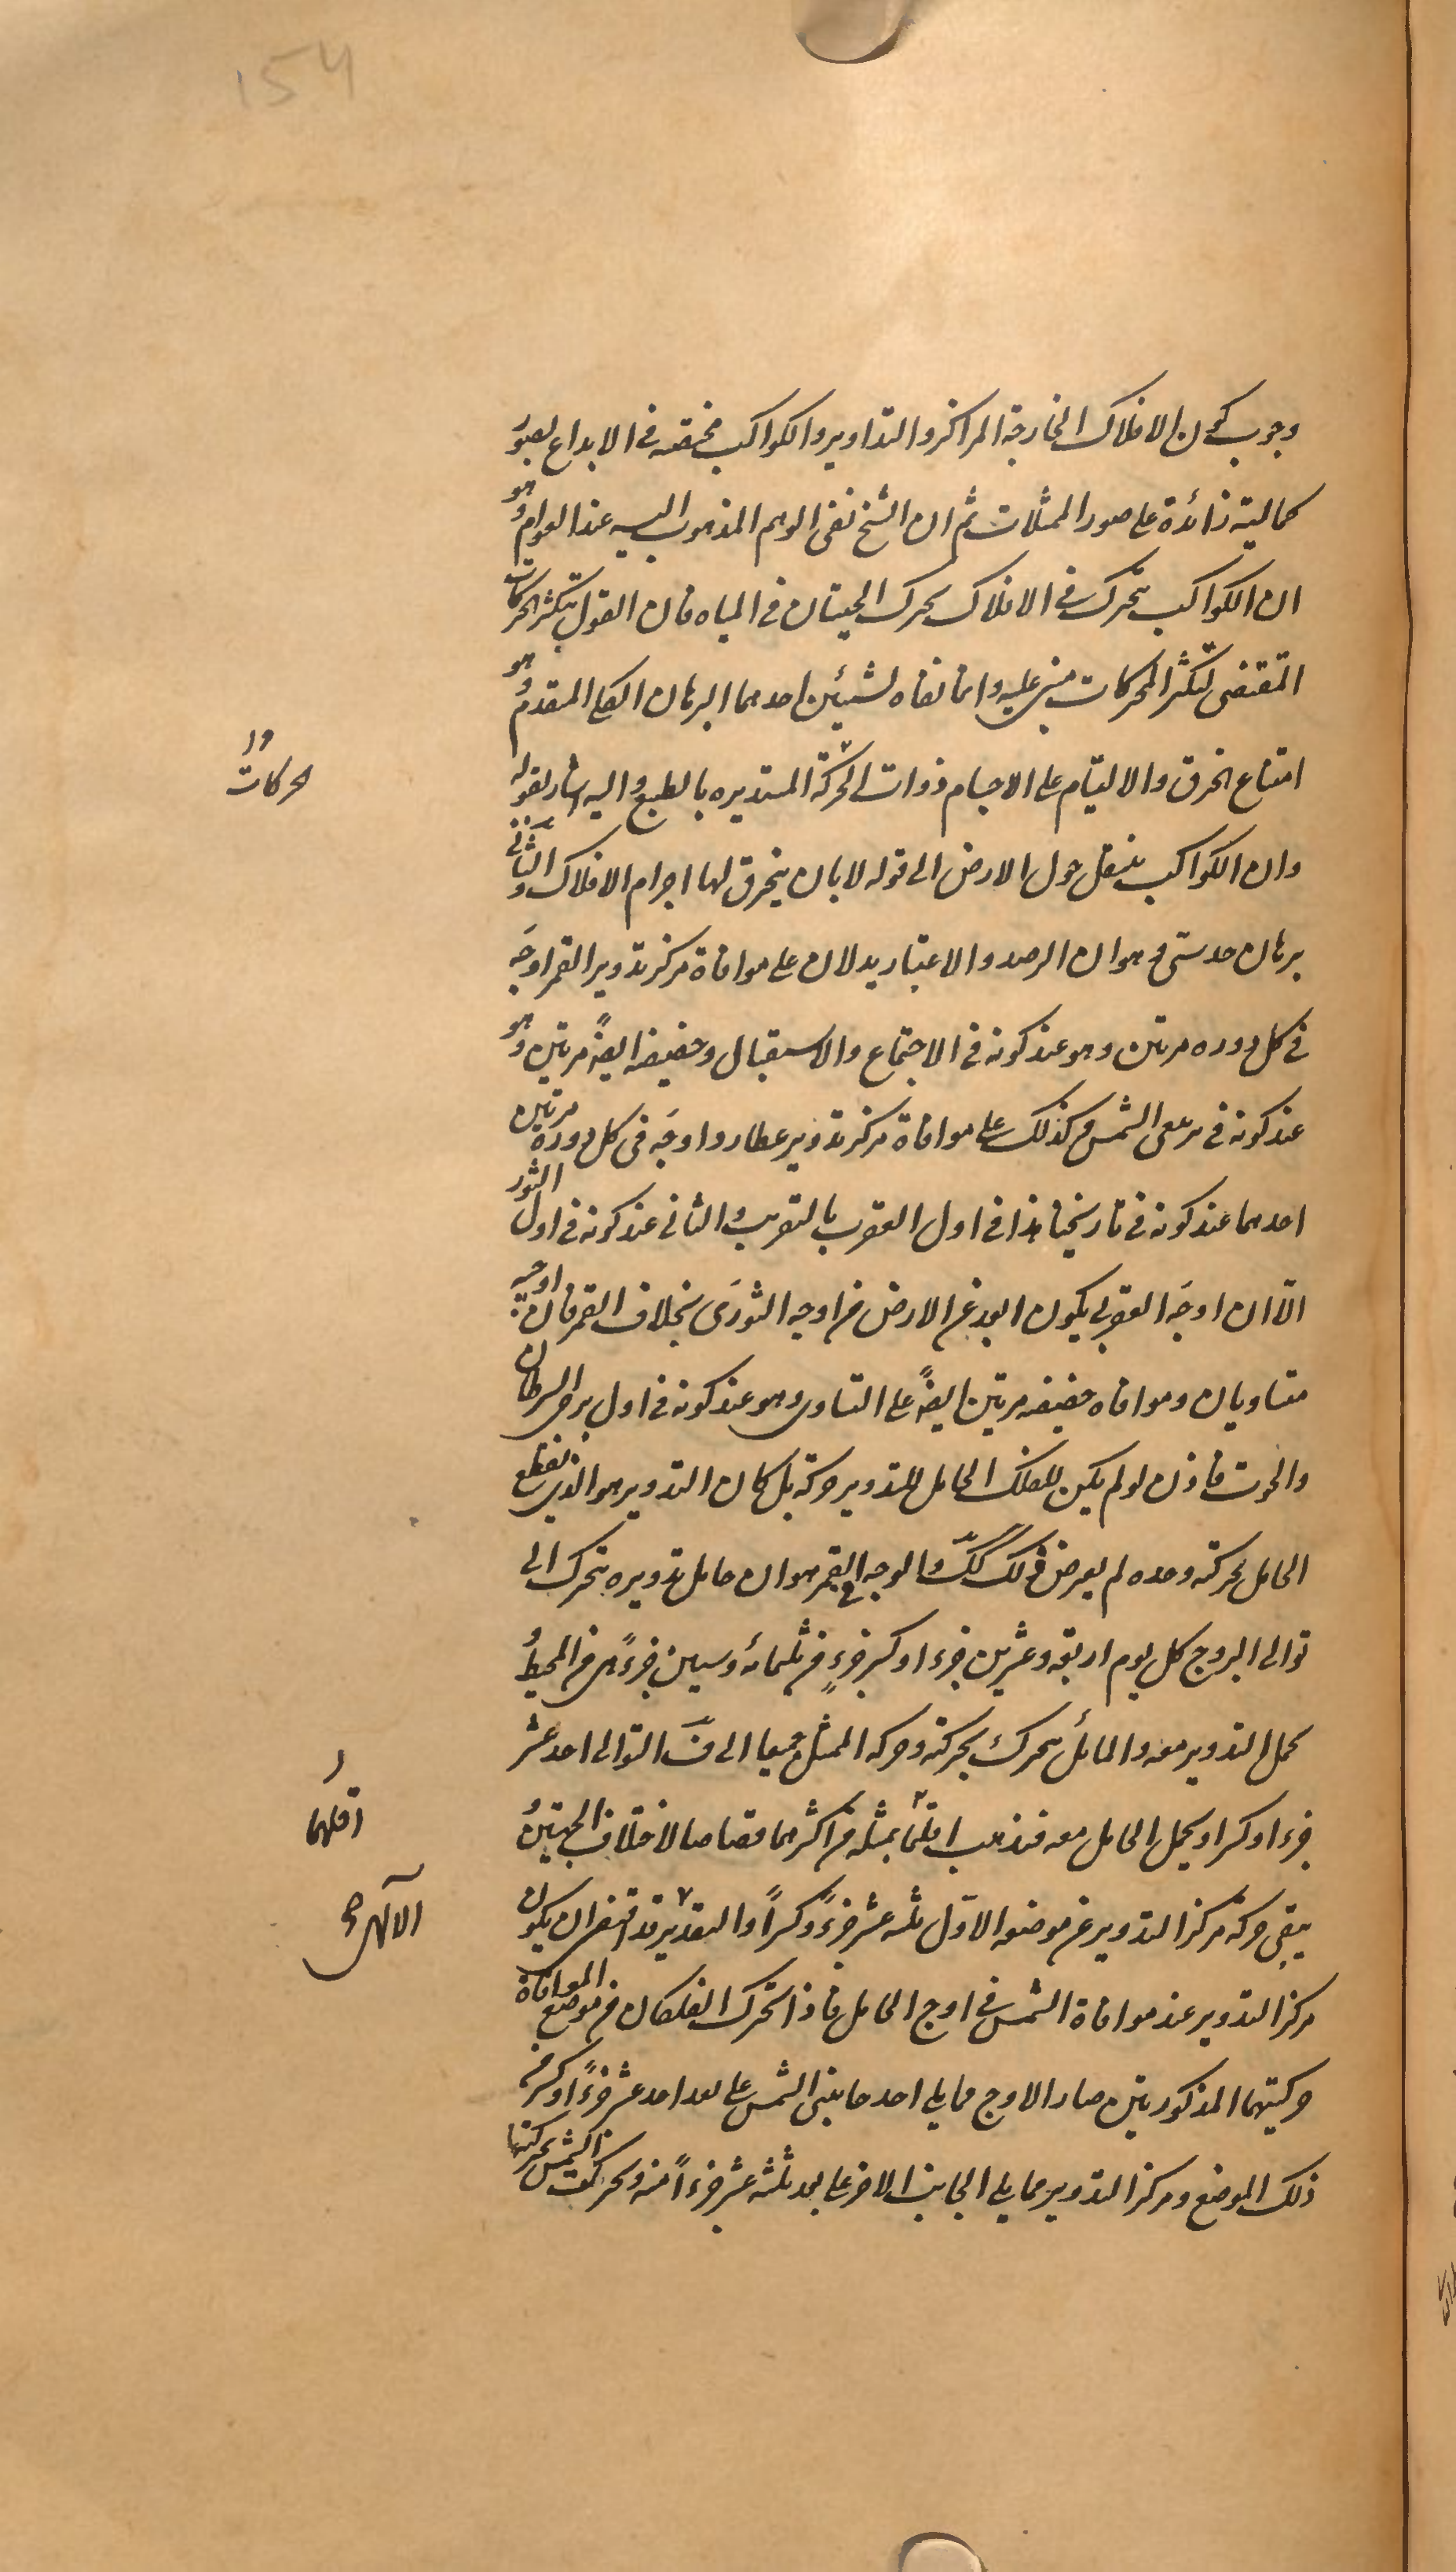 154
وجوب كون الافلاك الخارجة المراكز والتداوير والكواكب مختصه فى الابداع بصور
كمالية زائدة على صور الممثلات ثم ان الشيخ نفى الوهم المذهوب اليه عند العوام وهو
ان الكواكب يتحرك فى الافلاك تحرك الحيتان فى المياه فان القول بتكثر الحركات
المقتضى لتكثر المحركات مبنى عليه وانما نفاه لشيئين احدهما البرهان الكلى المقدم وهو
امتناع الخرق والالتيام على الاجسام ذوات الحركة المستديره بالطبع واليه اشار بقوله
وان الكواكب ينتقل حول الارض الى قوله لا بان ينخرق لها اجرام الافلاك والثانى
برهان حدسى وهو ان الرصد والاعتبار يدلان على موافاة مركز تدوير القمر اوجه
فى كل دوره مرتين وهو عند كونه فى الاجتماع والاستقبال وحضيضه ايضً مرتين وهو
عند كونه فى تربيعى الشمس وكذلك على موافاة مركز تدوير عطارد اوجه فى كل دوره مرتين
احدهما عند كونه فى تاريخنا هذا فى اول العقرب بالتقريب والثانى عند كونه فى اول الثور
الّا ان اوجه العقربى يكون ابعد عن الارض من اوجه الثورى بخلاف القمر فان اوجيه
متساويان وموافاه حضيضه مرتين ايضً على التساوى وهو عند كونه فى اول برجى السرطان
والحوت فاذن لو لم يكن للفلك الحامل للتدوير حركة بل كان التدوير هو الذى يقطع
الحامل بحركته وحده لم يعرض ذلك كك والوجه فى القمر هو ان حامل تدويره يتحرك الى
توالى البروج كل يوم اربعة وعشرين جزء او كسر جزءٍ من ثلثمائه وستين جزءً هى من المحيط و
يحمل التدوير معه والمائل يتحرك بحركته وحركه الممثل جميعا الى خلاف التوالى احد عشر
جزء او كسرا ويحمل الحامل معه فتذهب اقلهما بمثله من اكثرهما قصاصا لاختلاف الجهتين و
يبقى حركة مركز التدوير عن موضعه الاول ثلثه عشر جزءً وكسراً والتقدير قد اقتضى ان يكون
مركز التدوير عند موافاة الشمس فى اوج الحامل فاذا تحرك الفلكان من موضع الموافاة
حركتيهما المذكورتين صار الاوج مما يلى احد جانبى الشمس على بعد احد عشر جزءً او كسر من
ذلك الموضع ومركز التدوير مما يلى الجانب الاخر على بعد ثلثه عشر جزءاً منه وتحركت الشمس بحركتها
حركات
اقلهما
الآلهى